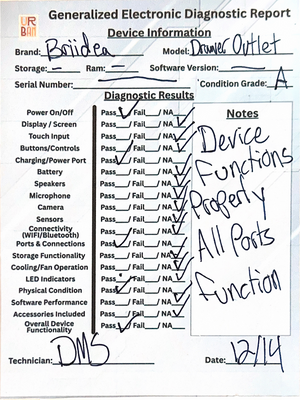 UR
BAN
Generalized Electronic Diagnostic Report
Device Information
Brand: Briidea Model: Drawer Outlet
Storage: — Ram: — Software Version: —
Serial Number: Condition Grade: A
Diagnostic Results
Power On/Off Pass ✓ / Fail__ / NA__
Display / Screen Pass__ / Fail__ / NA ✓
Touch Input Pass__ / Fail__ / NA ✓
Buttons/Controls Pass__ / Fail__ / NA ✓
Charging/Power Port Pass ✓ / Fail__ / NA__
Battery Pass__ / Fail__ / NA ✓
Speakers Pass__ / Fail__ / NA ✓
Microphone Pass__ / Fail__ / NA ✓
Camera Pass__ / Fail__ / NA ✓
Sensors Pass__ / Fail__ / NA ✓
Connectivity
(WIFI/Bluetooth) Pass__ / Fail__ / NA ✓
Ports & Connections Pass ✓ / Fail__ / NA__
Storage Functionality Pass__ / Fail__ / NA ✓
Cooling/Fan Operation Pass__ / Fail__ / NA ✓
LED Indicators Pass__ / Fail__ / NA ✓
Physical Condition Pass ✓ / Fail__ / NA__
Software Performance Pass__ / Fail__ / NA ✓
Accessories Included Pass__ / Fail__ / NA ✓
Overall Device
Functionality Pass ✓ / Fail__ / NA__
Notes
Device
Functions
Properly
All Ports
Function
Technician: DMS Date: 12/14